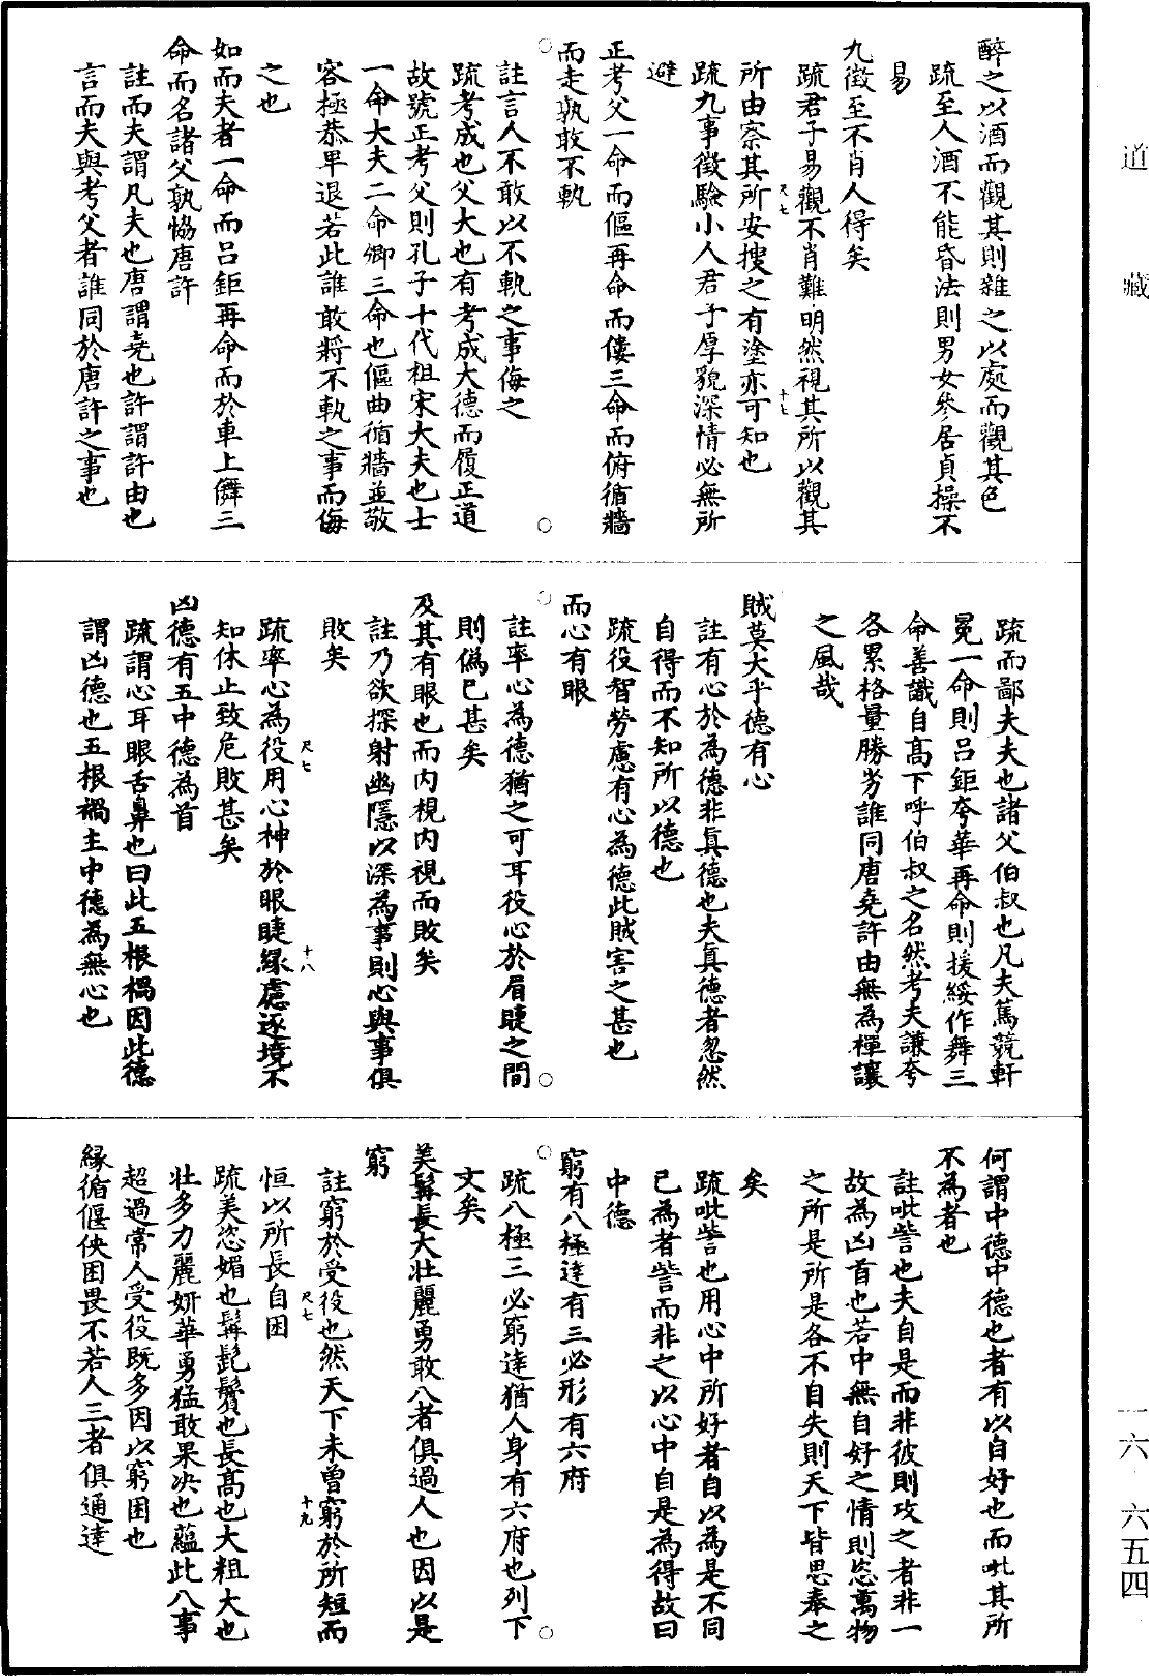 道藏
醉之以酒而觀其則雜之以處而觀其色
疏至人酒不能昏法則男女參居貞操不
易
九徵至不肖人得矣
疏君子易觀不肖難明然視其所以觀其
尺七
十七
所由察其所安搜之有塗亦可知也
疏九事徵驗小人君子厚貌深情必無所
避
正考父一命而傴再命而僂三命而俯循牆
而走孰敢不軌
註言人不敢以不軌之事侮之
疏考成也父大也有考成大德而履正道
故號正考父則孔子十代祖宋大夫也士
一命大夫二命卿三命也傴曲循牆並敬
容極恭卑退若此誰敢將不軌之事而侮
之也
如而夫者一命而呂鉅再命而於車上儛三
命而名諸父孰恊唐許
註而夫謂凡夫也唐謂堯也許謂許由也
言而夫與考父者誰同於唐許之事也
疏而鄙夫夫也諸父伯叔也凡夫篤競軒
冕一命則呂鉅夸華再命則援綏作舞三
命善識自高下呼伯叔之名然考夫謙夸
各累格量勝劣誰同唐堯許由無為禪讓
之風哉
賊莫大乎德有心
註有心於為德非真德也夫真德者忽然
自得而不知所以德也
疏役智勞慮有心為德此賊害之甚也
而心有眼
註率心為德猶之可耳役心於眉睫之間
則偽已甚矣
及其有眼也而內視內視而敗矣
註乃欲探射幽隱以深為事則心與事俱
敗矣
尺七
十八
疏率心為役用心神於眼睫緣慮逐境不
知休止致危敗甚矣
凶德有五中德為首
疏謂心耳眼舌鼻也曰此五根禍因此德
謂凶德也五根禍主中德為無心也
何謂中德中德也者有以自好也而吡其所
不為者也
註吡訾也夫自是而非彼則攻之者非一
故為凶首也若中無自好之情則恣萬物
之所是所是各不自失則天下皆思奉之
矣
疏吡訾也用心中所好者自以為是不同
已為者訾而非之以心中自是為得故曰
中德
窮有八極達有三必形有六府
疏八極三必窮達猶人身有六府也列下
文矣
美髯長大壯麗勇敢八者俱過人也因以是
窮
註窮於受役也然天下未曾窮於所短而
尺七
十九
恒以所長自困
疏美恣媚也髯髭鬢也長高也大粗大也
壯多力麗妍華勇猛敢果決也蘊此八事
超過常人受役既多因以窮困也
緣循偃佒困畏不若人三者俱通達
一六 六五四